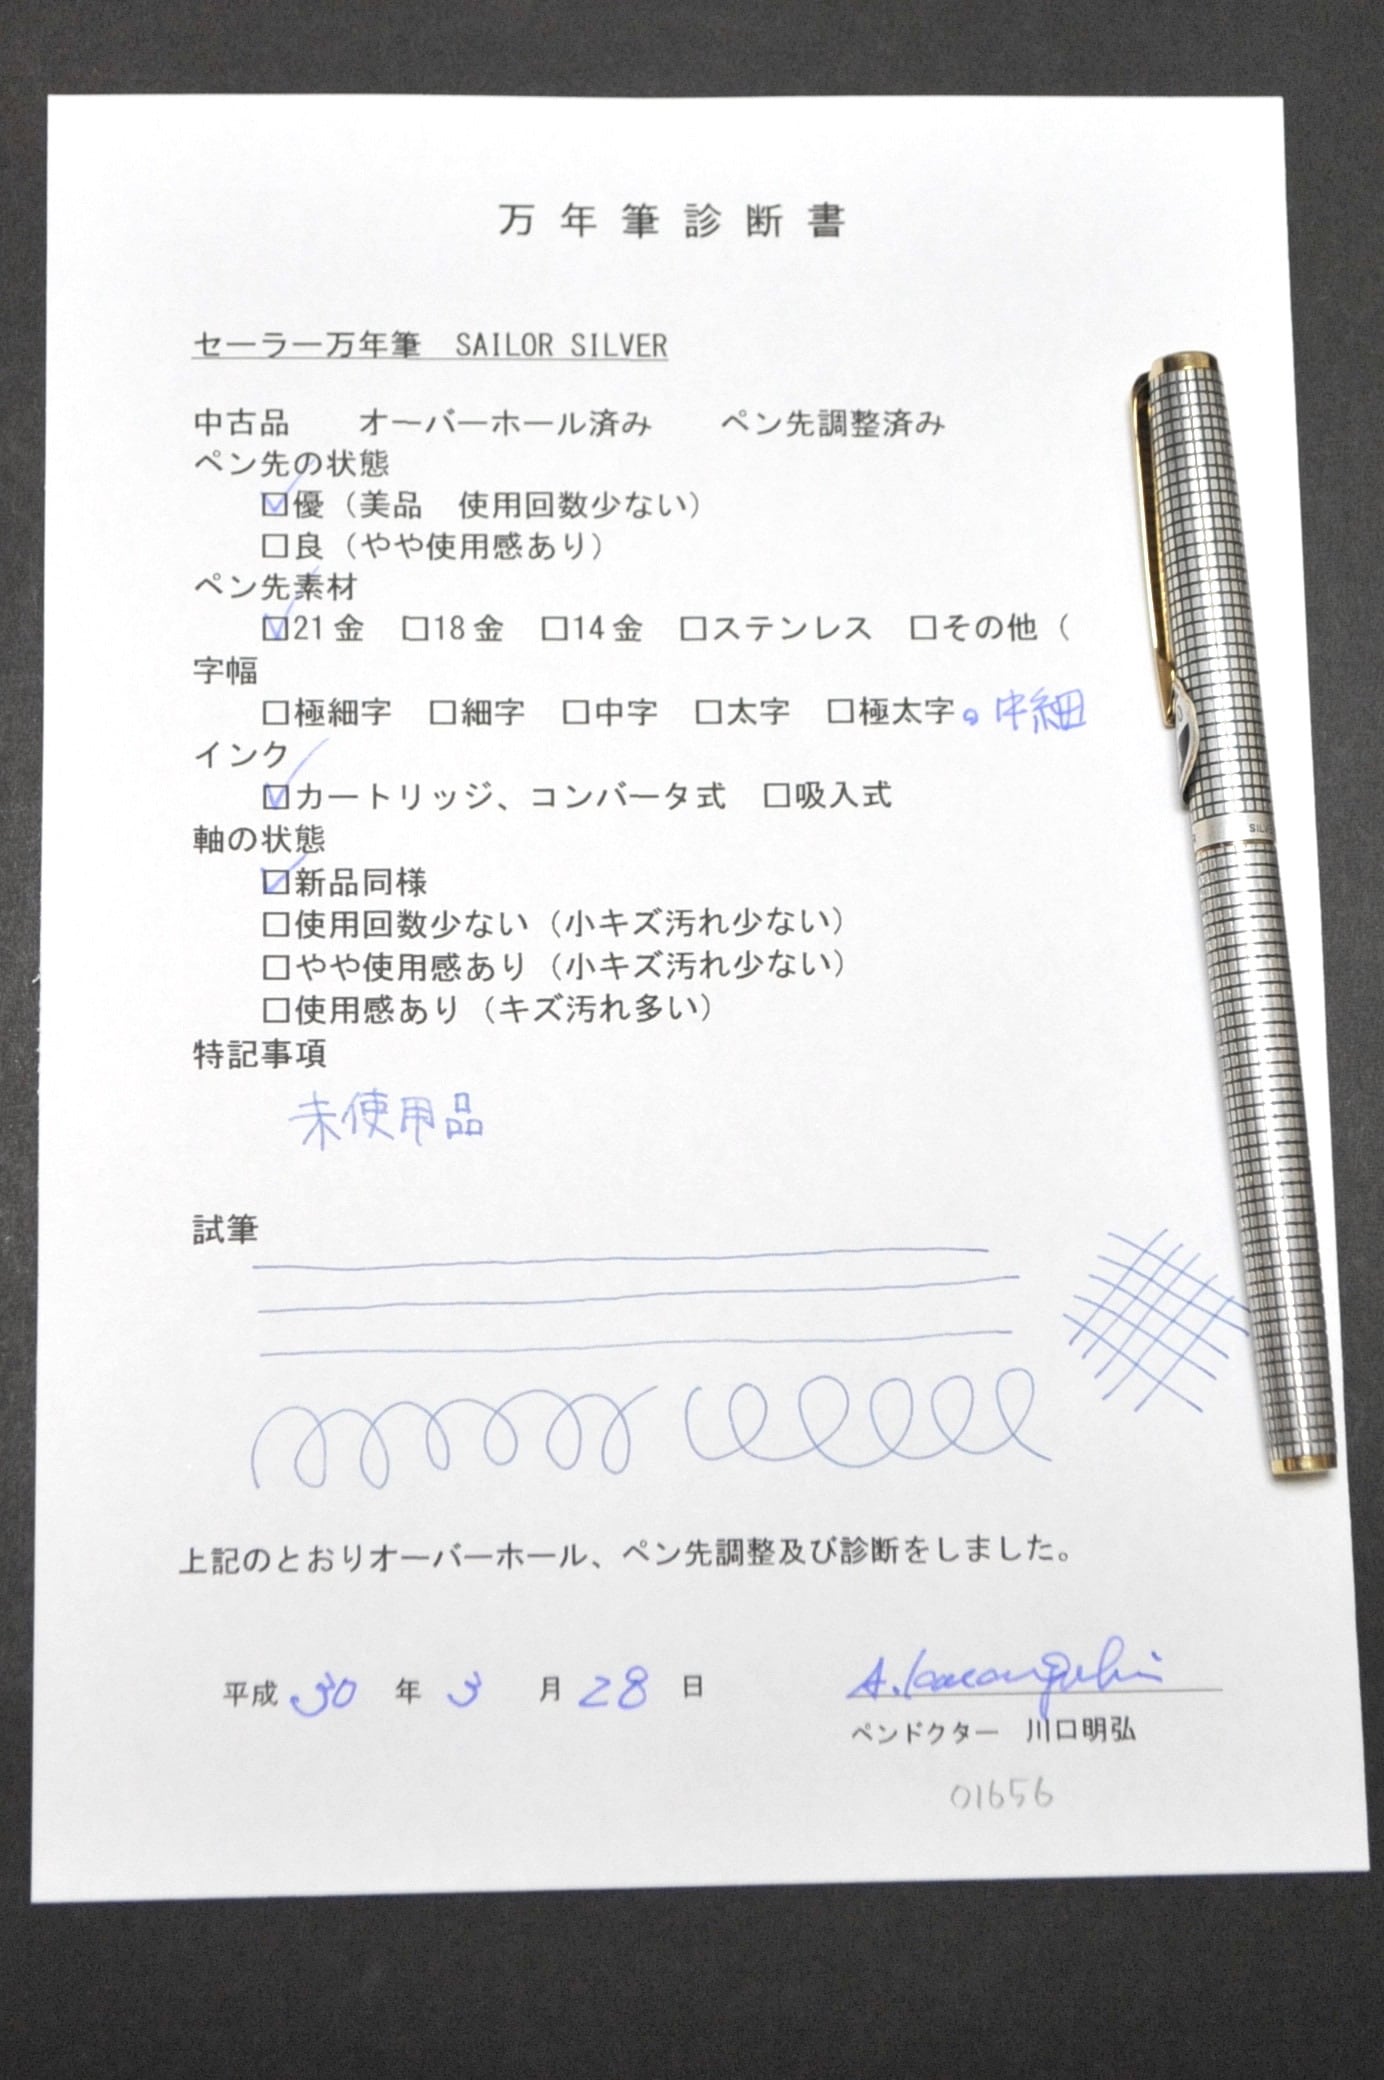 万年筆診断書
セーラー万年筆　SAILOR SILVER
中古品　　オーバーホール済み　　ペン先調整済み
ペン先の状態
☑優（美品　使用回数少ない）
□良（やや使用感あり）
ペン先素材
☑21金　□18金　□14金　□ステンレス　□その他（
字幅
□極細字　□細字　□中字　□太字　□極太字。中細
インク
☑カートリッジ、コンバータ式　□吸入式
軸の状態
☑新品同様
□使用回数少ない（小キズ汚れ少ない）
□やや使用感あり（小キズ汚れ少ない）
□使用感あり（キズ汚れ多い）
特記事項
未使用品
試筆
上記のとおりオーバーホール、ペン先調整及び診断をしました。
平成 30 年 3 月 28 日
A. Kawaguchi
ペンドクター　川口明弘
01656